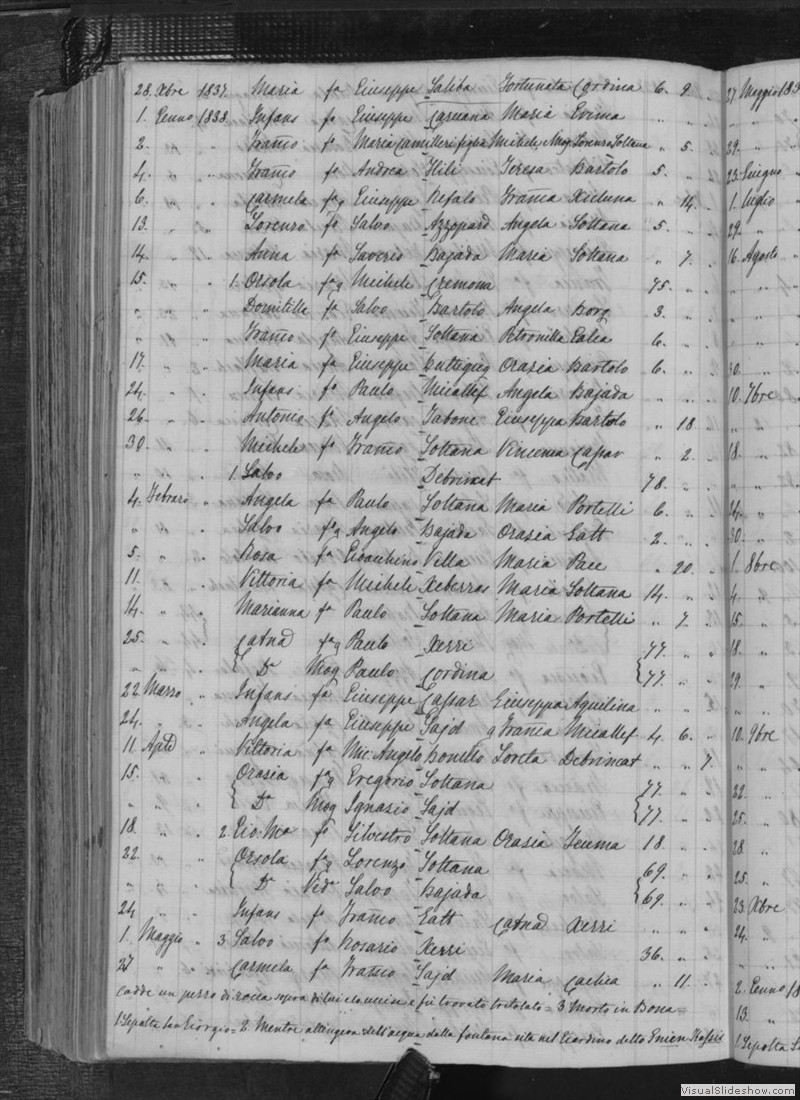 28. Xbre 1837. Maria fa Giuseppe Saliba Fortunata Cordina 6. 9. "
1. Genno 1838. Infans fo Giuseppe Caruana Maria Evima " " "
2. " " Franco fo Maria Camilleri figlia Michele Mog Lorenzo Soltana " 5. "
4. " " Franco fo Andrea Hili Teresa Bartolo 5. " "
6. " " Carmela fa q Giuseppe Refalo Franca Xicluna " 14. "
13. " " Lorenzo fo Salvo Azzopard Angela Soltana 5. " "
14. " " Anna fa Saverio Bajada Maria Soltana " 7. "
15. " " 1. Orsola fa q Michele Cremona 75. " "
" " " Domitilla fa Salvo Bartolo Angela Borg 3. " "
" " " Franco fo Giuseppe Soltana Petronilla Galia 6. " "
17. " " Maria fa Giuseppe Buttigieg Orasia Bartolo 6. " "
24. " " Infans fo Paulo Micallef Angela Bajada " " "
26. " " Antonio fo Angelo Tabone Giuseppa Bartolo " 18. "
30. " " Michele fo Franco Soltana Vincenza Caspar " 2. "
" " " 1. Salvo Debrincat 78. " "
4. Febraro " Angela fa Paulo Soltana Maria Portelli 6. " "
" " " Salvo fo q Angelo Bajada Orasia Gatt 2. " "
5. " " Rosa fa Gioachino Villa Maria Pace " 20. "
11. " " Vittoria fa Michele Xeberras Maria Soltana 14. " "
14. " " Marianna fa Paulo Soltana Maria Portelli " 7. "
25. " " Catna fa q Paulo Xerri 77. " "
" " " Da Mog Paulo Cordina 77. " "
22. Marzo " Infans fo Giuseppe Cassar Giuseppa Aquilina " " "
24. " " Angela fa Giuseppe Sajd q Franca Micallef 4. 6. "
11. Aprile " Vittoria fa Mic: Angelo Bonello Loreta Debrincat " " 7.
15. " " Orasia fa q Gregorio Soltana 77. " "
" " " Da Mog Ignazio Sajd 77. " "
18. " " 2. Gio: Ma fo Silvestro Soltana Orasia Teuma 18. " "
22. " " Orsola fa q Lorenzo Soltana 69. " "
" " " Da Veda Salvo Bajada 69. " "
24 " " Infans fo Franco Gatt Catna Xerri " " "
1. Maggio " 3 Salvo fo Rosario Xerri 36. " "
27 " " Carmela fa Franco Sajd Maria Cachia " 11. "
cadde un pezzo di rocca sopra di lui e l'uccise e fù trovato tritolato = 3 Morto in Bona =
1 Sepolta San Giorgio = 2. Mentre attingeva dell'acqua dalla fontana sita nel Giardino detto
27. Maggio 183
29. "
23. Giugno
1. Luglio
29. "
16. Agosto
30. "
10. 7bre
18. "
24. "
30. "
1. 8bre
4. "
15. "
18. "
29. "
10. 9bre
22. "
25. "
28. "
25. "
23. Xbre
24. "
2. Genno 18
13. "
1 Sepolta S
VisualSlideshow.com